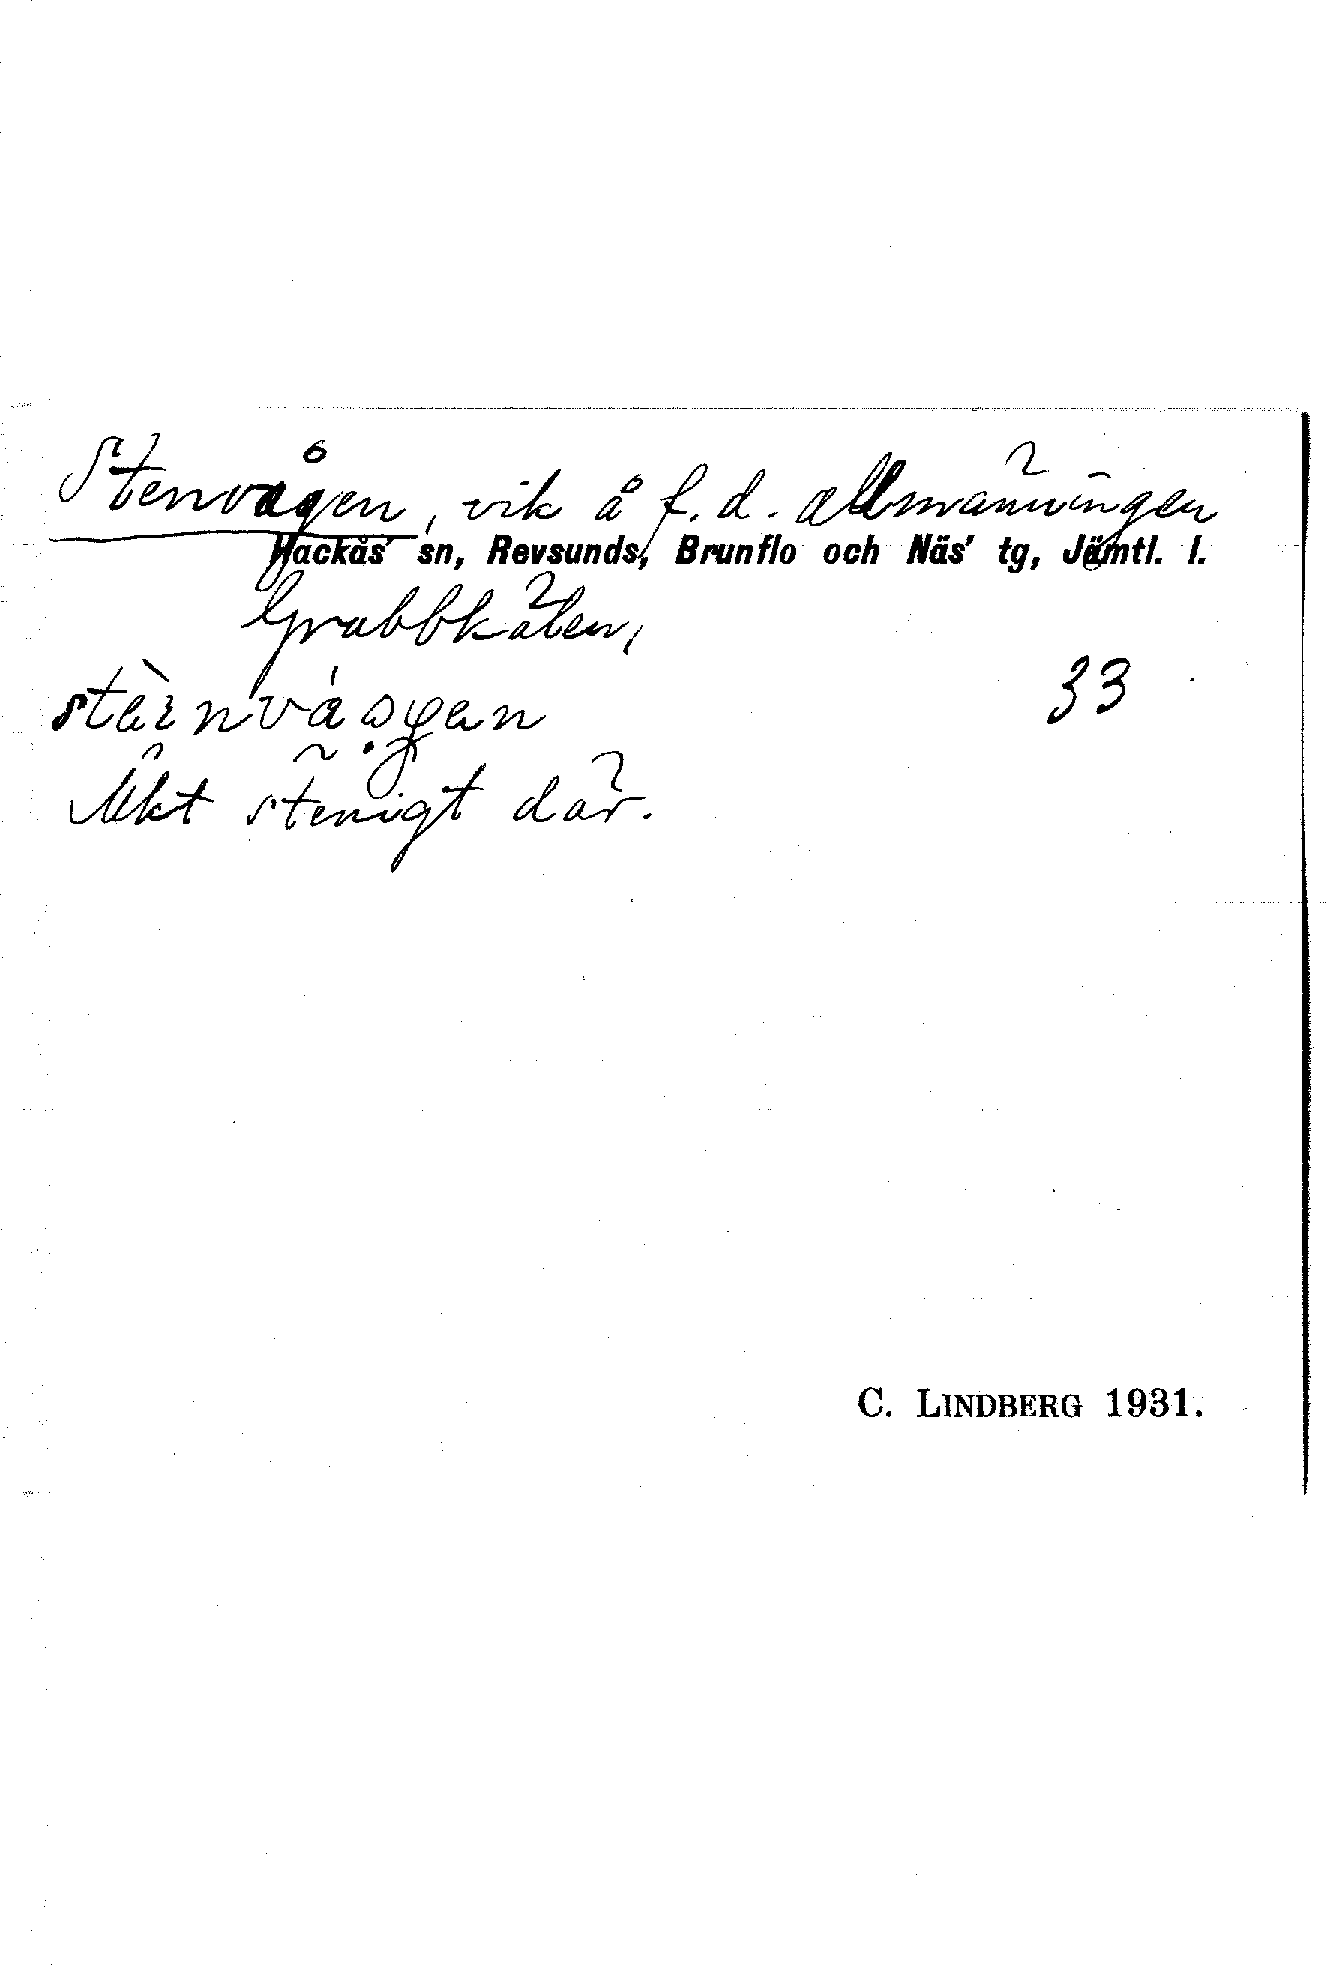 Stenvågen, vik å f.d. allmänningen
Hackås sn, Revsunds, Brunflo och Näs' tg, Jämtl. l.
Grubbkälen,
33
Mkt stenigt där.
C. LINDBERG 1931.